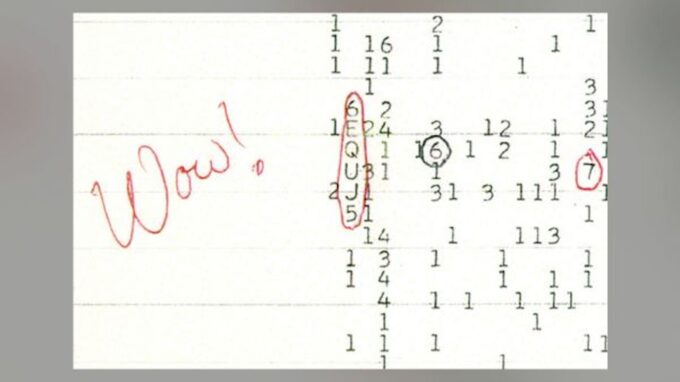 Wow!
1 2 1
1 16 1 1
1 11 1 1
1 3
6 2 3
E 24 3 12 1 2
Q 1 16 1 2 1 1
U 31 1 3 7
2 J 1 31 3 111 1
5 1 1
14 1 113
1 3 1 1 1
1 4 1 1 1
4 1 1 1 11
1 1
1 1 1 11
1 1